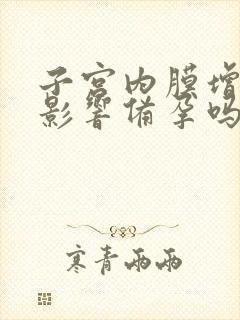 子宫内膜增
影響备孕吗
寒青雨雨